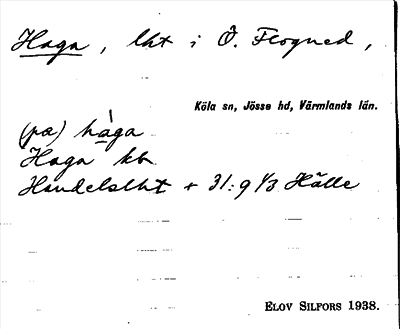 Haga, lht i Ö. Flogned,
Köla sn, Jösse hd, Värmlands län.
(på) hàga
Haga kb
Handelslht + 31:9 1/3 Hälle
ELOV SILFORS 1938.